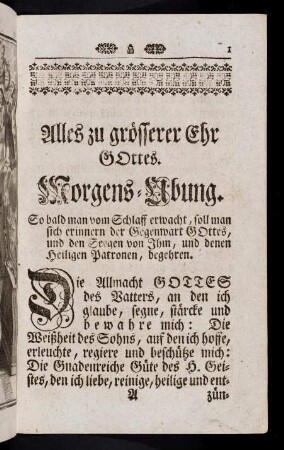 1
Alles zu grösserer Ehr
GOttes.
Morgens-Ubung.
So bald man vom Schlaff erwacht, soll man
sich erinnern der Gegenwart GOttes,
und den Seegen von Ihm, und denen
Heiligen Patronen, begehren.
Die Allmacht GOTTES
des Vatters, an den ich
glaube, segne, stärcke und
bewahre mich: Die
Weißheit des Sohns, auf den ich hoffe,
erleuchte, regiere und beschütze mich:
Die Gnadenreiche Güte des H. Gei-
stes, den ich liebe, reinige, heilige und ent-
A zün-